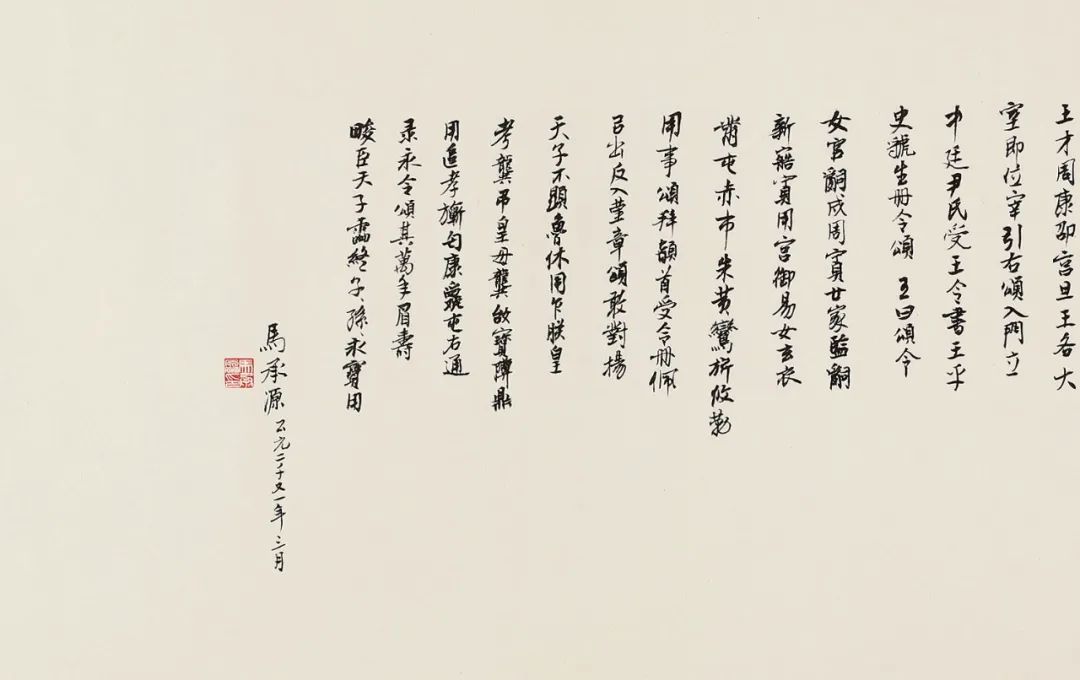 王才周康卲宫旦王各大
室即位宰引右頌入門立
中廷尹氏受王令書王乎
史虢生册令頌 王曰頌令
女官嗣成周賓廿家監嗣
新寤賓用宫御易女玄衣
黹屯赤巿朱黄鑾旂攸勒
用事頌拜䭫首受令册佩
㠯出反入堇章頌敢對揚
天子不顯魯休用乍朕皇
考龔弔皇母龔姒寶䵼鼎
用追孝旂匄康屯右通
录永令頌其萬年眉壽
畯臣天子霝終子孫永寶用
馬承源 公元二千又一年 三月